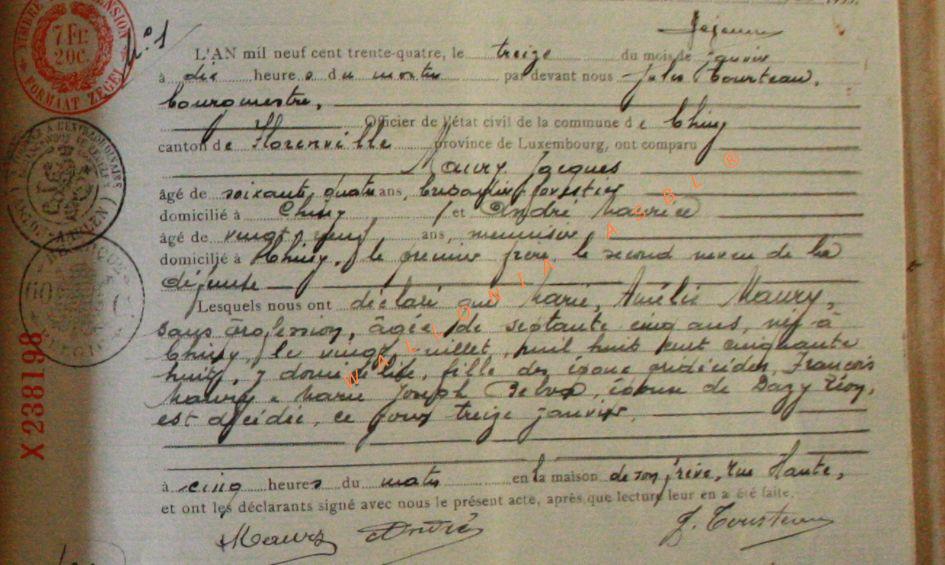 N° 1
7 Fr. 20c.
FORMAAT ZEGEL
L'AN mil neuf cent trente-quatre, le treize du mois de janvier
à dix heures du matin par devant nous Jules Tourteau,
bourgmestre,
Officier de l'état civil de la commune de Chiny
canton de Florenville province de Luxembourg, ont comparu
Maury Jacques
âgé de soixante quatre ans, brigadier forestier
domicilié à Chiny, et André Maurice
âgé de vingt neuf ans, menuisier
domicilié à Chiny, le premier frère, le second neveu de la
défunte
Lesquels nous ont déclaré que Marie, Amélie Maury,
sans profession, âgée de septante cinq ans, née à
Chiny, le vingt juillet, mil huit cent cinquante
huit, y domiciliée, fille des époux prédécédés, François
Maury & Marie Joseph épouse de Dazy Léon,
est décédée, ce jour treize janvier,
à cinq heures du matin en la maison de son frère, rue Haute,
et ont les déclarants signé avec nous le présent acte, après que lecture leur en a été faite.
Maury André J. Tourteau
X 238198
WALLONIA ASBL ®